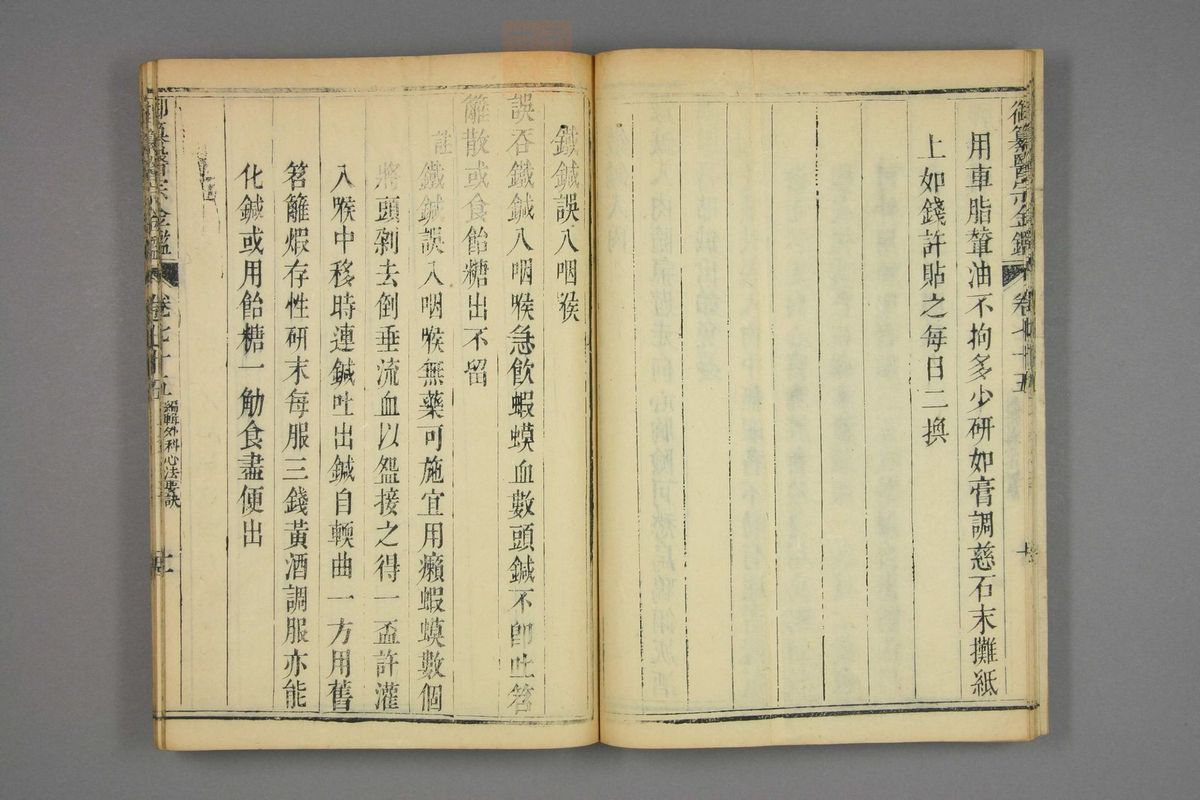 御纂醫宗金鑑 卷七十五
用車脂轝油不拘多少研如膏調慈石末攤紙
上如錢許貼之每日二換
鐵鍼誤入咽喉
誤吞鐵鍼入咽喉急飲蝦蟆血數頭鍼不卽吐笤
籬散或食飴糖出不留
註鐵鍼誤入咽喉無藥可施宜用癩蝦蟆數個
將頭剁去倒垂流血以盌接之得一盃許灌
入喉中移時連鍼吐出鍼自輭曲一方用舊
笤籬煆存性研末每服三錢黃酒調服亦能
化鍼或用飴糖一觔食盡便出
御纂醫宗金鑑 卷七十五 編輯外科心法要訣